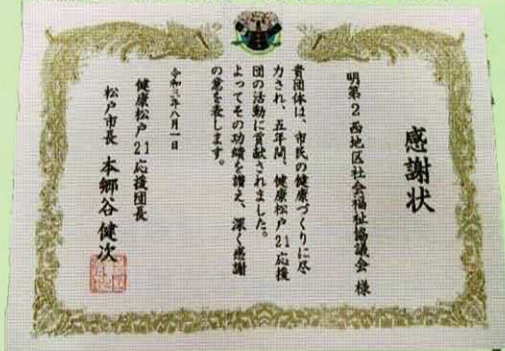 感謝状
明第2西地区社会福祉協議会 様
貴団体は、市民の健康づくりに尽
力され、五年間、健康松戸21応援
団の活動に貢献されました。
よってその功績を讃え、深く感謝
の意を表します。
令和三年八月一日
健康松戸21応援団長
松戸市長 本郷谷 健次